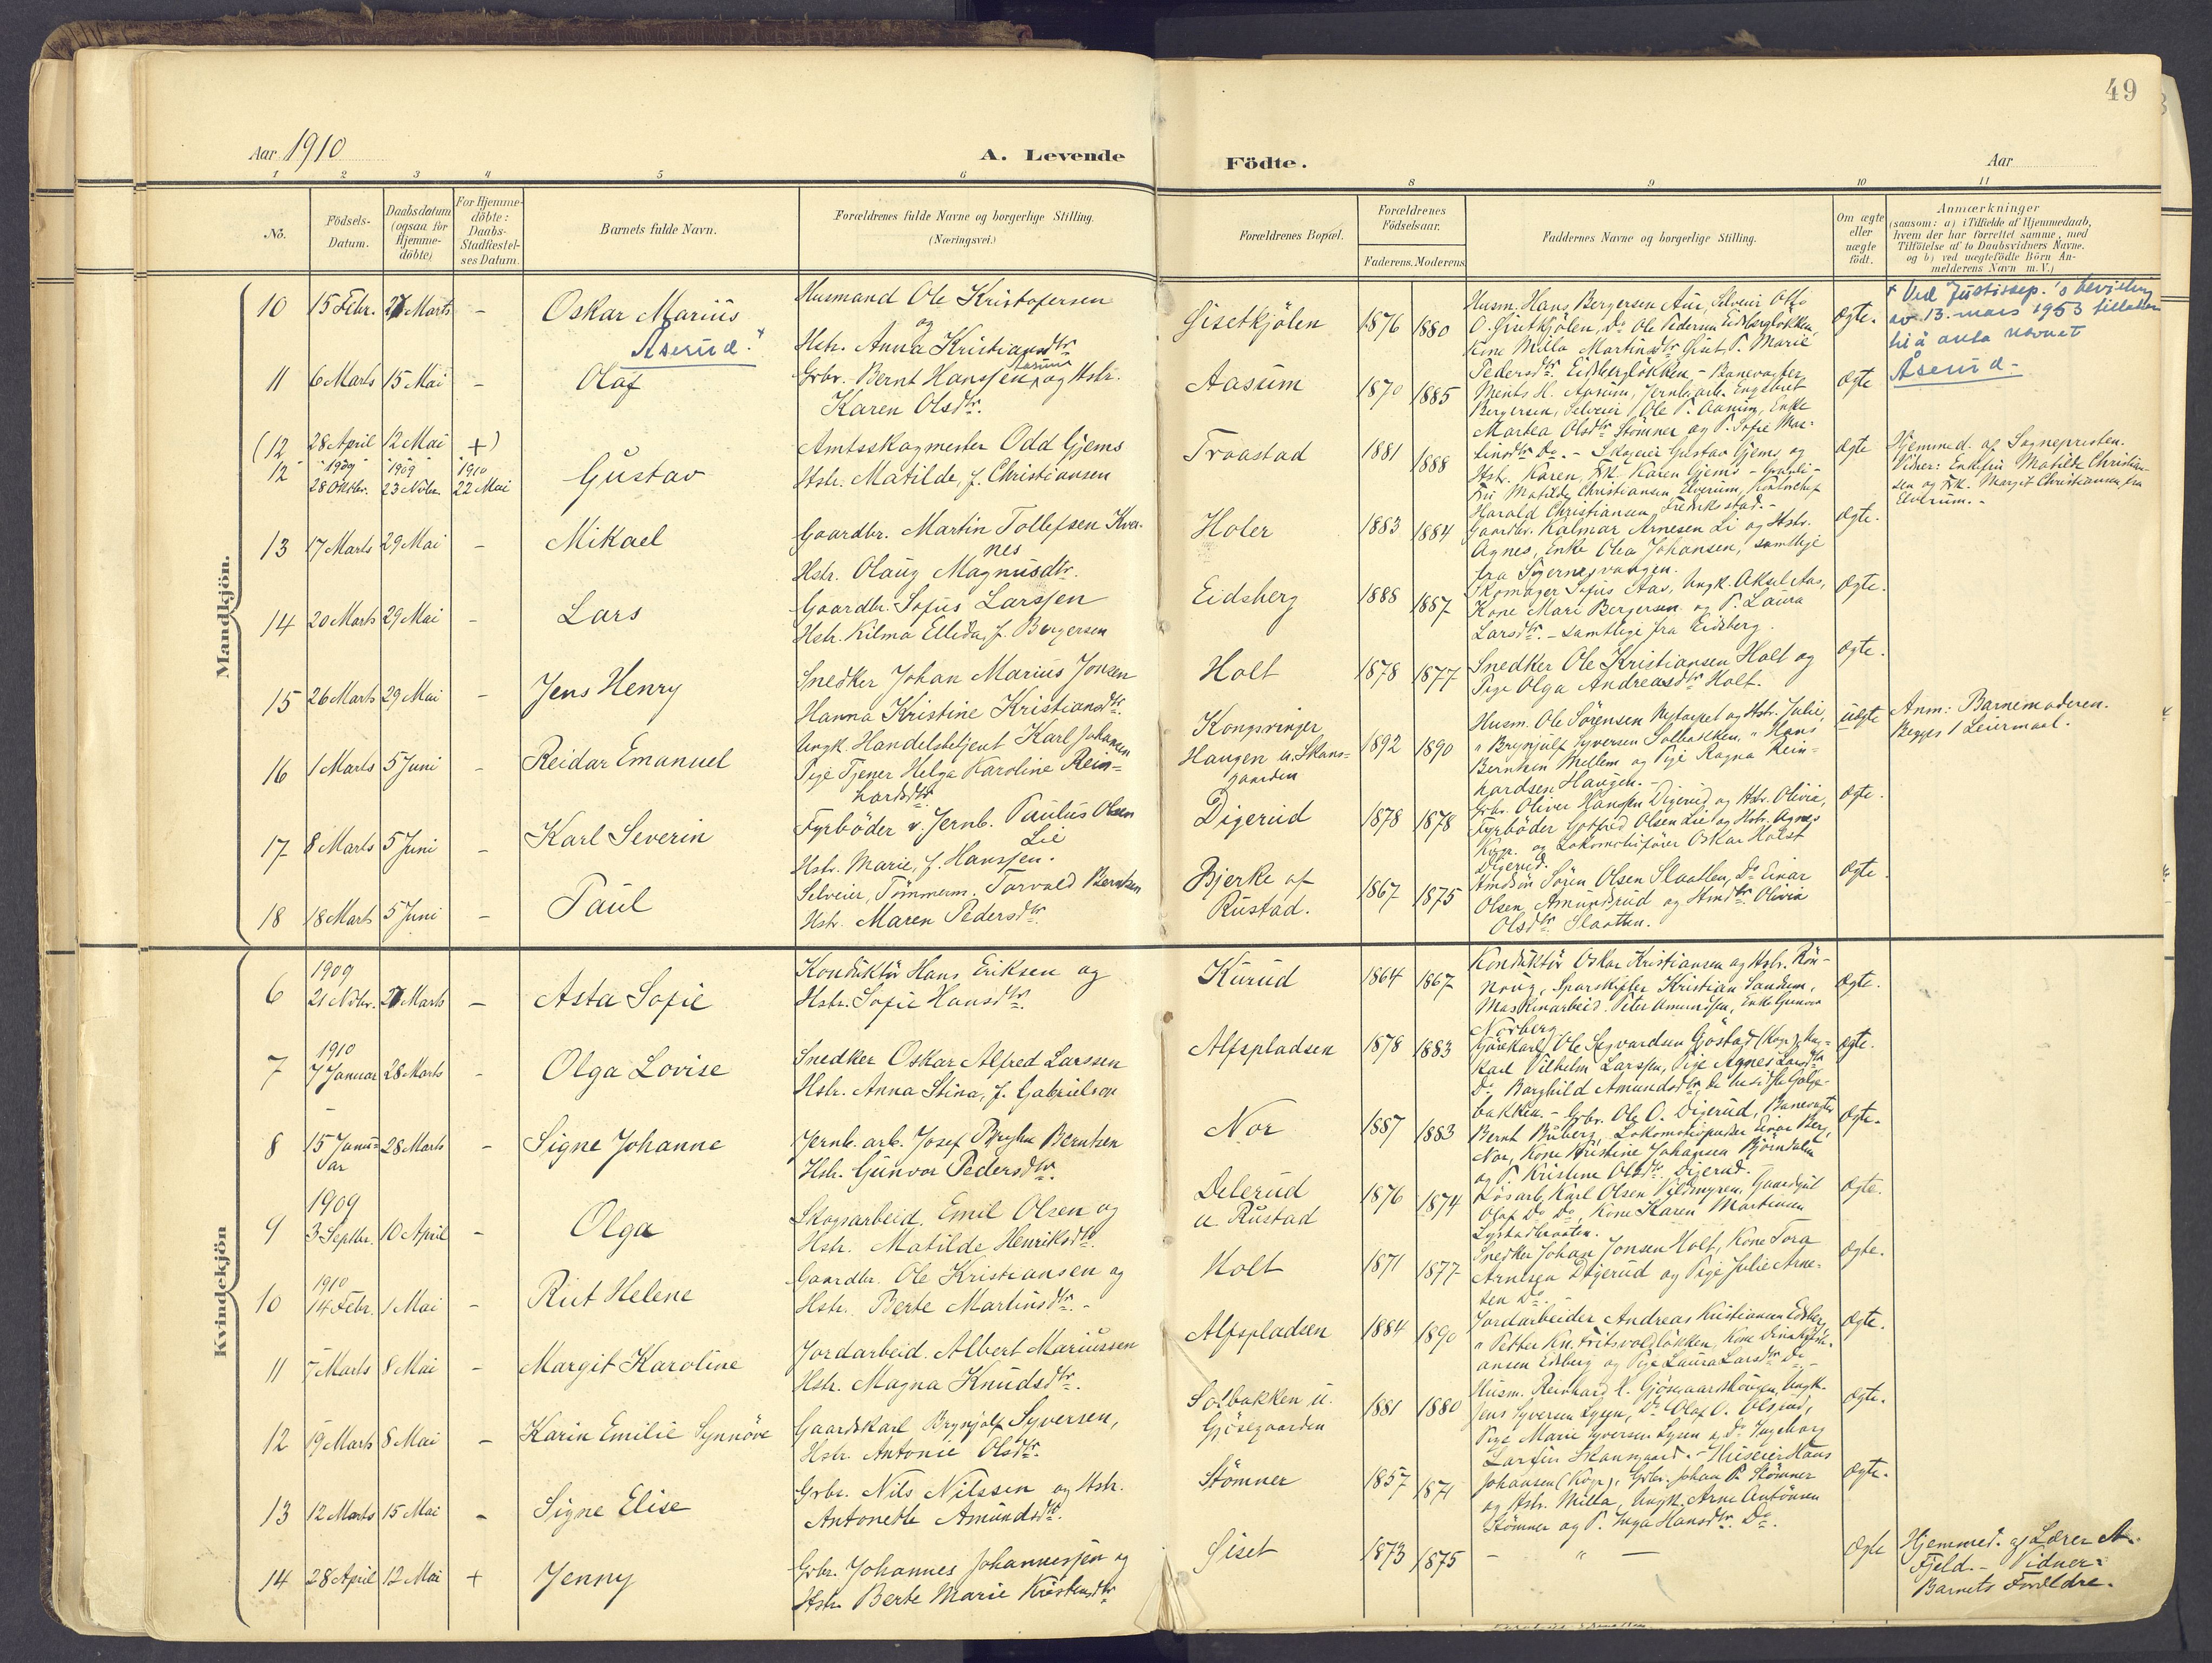 49
Aar 1910
A. Levende
Födte.
Aar
1 2 3 4 5 6 8 9 10 11
No.
Födsels-Datum.
Daabsdatum (ogsaa for Hjemme-döbte)
For Hjemme-döbte: Daabs-Stadfæstel-ses Datum.
Barnets fulde Navn.
Forældrenes fulde Navne og borgerlige Stilling.
(Næringsvei.)
Forældrenes Bopæl.
Forældrenes Födselsaar.
Faderens. Moderens.
Faddernes Navne og borgerlige Stilling.
Om ægte eller uægte födt.
Anmærkninger
(saasom: a) i Tilfælde af Hjemmedaab,
hvem der har forrettet samme, med
Tilföielse af to Daabsvidners Navne.
og b) ved uægtefödte Börn An-
melderens Navn m. V.)
Mandkjön.
10 15 Febr. 27 Marts - Oskar Marius
Åserud.+
Husmand Ole Kristofersen
og
Hstr. Anna Kristiansdtr
Gisetkjölen 1876 1880
Husm. Hans Bergersen Aur, Selveier Otto
O. Gisetkjölen, Do Ole Pedersen Eidsbergløkken,
Kone Milla Martinsdtr Giset, P. Marie
Pedersdtr Eidsbergløkken -
ægte.
+ Ved Justisdep.'s bevilling
av 13. mars 1953 tillatelse
til å anta navnet
Åserud -
11 6 Marts 15 Mai - Olaf
Grbr. Bernt Hanssen Aasum, og Hstr.
Karen Olsdtr.
Aasum 1870 1885
Banevogter
Bergersen, Selveier Ole P. Aasum, Enke
Martea Olsdtr Stömner og P. Sofie Mar-
tinsdtr Do. -
ægte
(12 28 April 12 Mai +)
12 1909 28 Oktbr. 1909 23 Novbr. 1910 22 Mai Gustav
Amtsskogmester Odd Gjems
Hstr. Matilde, f. Christiansen
Traastad 1881 1888
Skogeier Gustav Gjems og
Hstr. Karen, Frk. Karen Gjems -
Fru Matilde Christiansen Elverum, Kontorchef
Harald Christiansen, Fredrikstad. -
ægte
Hjemmed. af Sognepresten.
Vidner: Enkefru Matilde Christian-
sen og Frk. Margit Christiansen, fra
Elverum. -
13 17 Marts 29 Mai - Mikael
Gaardbr. Martin Tollefsen Kver-
nes
Hstr. Olaug Magnusdtr.
Holer 1883 1884
Gaardbr. Kalmar Arnesen Li og Hstr.
Agnes, Enke Olea Johansen, samtlige
fra Sigernesvangen.
ægte.
14 20 Marts 29 Mai - Lars
Gaardbr. Sofus Larssen
Hstr. Kilma Ellida, f. Bergersen
Eidsberg 1888 1887
Skomager Sofus Aas, Ungk. Aksel Aas,
Kone Mari Bergersen og P. Laura
Larsdtr. - samtlige fra Eidsberg.
ægte.
15 26 Marts 29 Mai - Jens Henry
Snedker Johan Marius Jonsen
Hanna Kristine Kristiansdtr.
Holt 1878 1877
Snedker Ole Kristiansen Holt og
Pige Olga Andreasdtr Holt.
ægte.
16 1 Marts 5 Juni - Reidar Emanuel
Ungk. Handelsbetjent Karl Johansen
Pige Tjener Helga Karoline Rein-
hardsdtr.
Kongsvinger
Haugen u. Skans-
gaarden
1892 1890
Husm. Ole Sörensen Nytorpet og Hstr. Julie,
" Brynjulf Syversen Solbakken, " Hans
Berntsen Mellem og Pige Ragna Rein-
hardsen Haugen. -
uægte
Anm: Barnemoderen.
Begges 1 Leiermaal.
17 8 Marts 5 Juni - Karl Severin
Fyrböder v. Jernb. Paulus Olsen
Lie
Hstr. Marie, f. Hanssen.
Digerud 1878 1878
Grbr. Oliver Hansen Digerud og Hstr. Olivia,
Fyrböder Gotfred Olsen Lie og Hstr. Agnes
Kvgr. og Lokomotivförer Oskar Holst
Digerud.
ægte.
18 18 Marts 5 Juni - Paul
Selveier, Tömmerm. Torvald Berntsen
Hstr. Maren Pedersdtr.
Bjerke af
Rustad.
1867 1875
Smdsön Sören Olsen Slaatten, Do Einar
Olsen Amundrud og Smdtr Olivia
Olsdtr Slaatten.
ægte.
Kvindekjön
6 1909 21 Novbr. 27 Marts - Asta Sofie
Konduktör Hans Eriksen og
Hstr. Sofie Hansdtr.
Kurud 1864 1867
Konduktör Oskar Kristiansen og Hstr. Rön-
naug, Sporskifter Kristian Sandum,
Maskinarbeid. Peter Amundsen, Enke Gunvor
Norberg
ægte.
7 1910 7 Januar 28 Marts - Olga Lovise
Snedker Oskar Alfred Larssen
Hstr. Anna Stina, f. Gabrielson
Alfspladsen 1878 1883
Ole Sigvardsen Gjöstad (Kvgr.),
Karl Vilhelm Larssen, Pige Agnes Larsdtr
Do Borghild Amundsdtr
ægte.
8 15 Janu-
ar 28 Marts - Signe Johanne
Jernb. arb. Josef Bryhn Berntsen
Hstr. Gunvor Pedersdtr.
Nor 1887 1883
Grbr. Ole O. Digerud, Banevogter
Bernt Buberg, Lokomotivpudser Einar Berg,
Nor, Kone Kristine Johansen Björndalen
og P. Kristine Olsdtr Digerud.
ægte.
9 1909 3 Septbr. 10 April - Olga
Skogsarbeid. Emil Olsen og
Hstr. Matilde Henriksdtr.
Delerud
u. Rustad
1876 1874
Lösarb. Karl Olsen Vildmyren, Gaardgut
Olaf Do Do, Kone Karen Martinsen
Lystadbraaten.
ægte.
10 1910 14 Febr. 1 Mai - Rut Helene
Gaardbr. Ole Kristiansen og
Hstr. Berte Martinsdtr. -
Holt 1871 1877
Snedker Johan Jonsen Holt, Kone Tora
Arnesen Digerud og Pige Julie Arne-
sen Do. -
ægte.
11 7 Marts 8 Mai - Margit Karoline
Jordarbeid. Albert Mariussen
Hstr. Magna Knudsdtr.
Alfspladsen 1884 1890
Jordarbeider Andreas Kristiansen Edsberg,
" Petter Kr. Fritsvoldløkken, Kone Dina Kristi-
ansen Edsberg og Pige Laura Larsdtr Do -
ægte.
12 19 Marts 8 Mai - Karin Emilie Synnöve
Gaardskarl Brynjulf Syversen,
Hstr. Antonie Olsdtr.
Solbakken u.
Gjösegaarden
1881 1880
Husm. Reinhard H. Gjösegaardshaugen, Ungk.
Jens Syversen Lysen, Do Olaf O. Olsrud,
Pige Marie Syversen Lysen og Do Ingeborg
Larsen Skansgaard. -
ægte.
13 12 Marts 15 Mai - Signe Elise
Grbr. Nils Nilssen og Hstr.
Antonette Amundsdtr.
Stömner 1857 1871
Huseier Hans
Johansen (Kvgr), Grbr. Johan P. Stömner
og Hstr. Milla, Ungk. Arne Antonsen
Stömner og P. Inga Hansdtr. Do.
ægte.
14 28 April 12 Mai + Jenny
Grbr. Johannes Johannessen og
Hstr. Berte Marie Kristensdtr
Giset 1873 1875
- " -
ægte
Hjemmed. af Lærer A.
Fjeld. - Vidner:
Barnets Forældre.